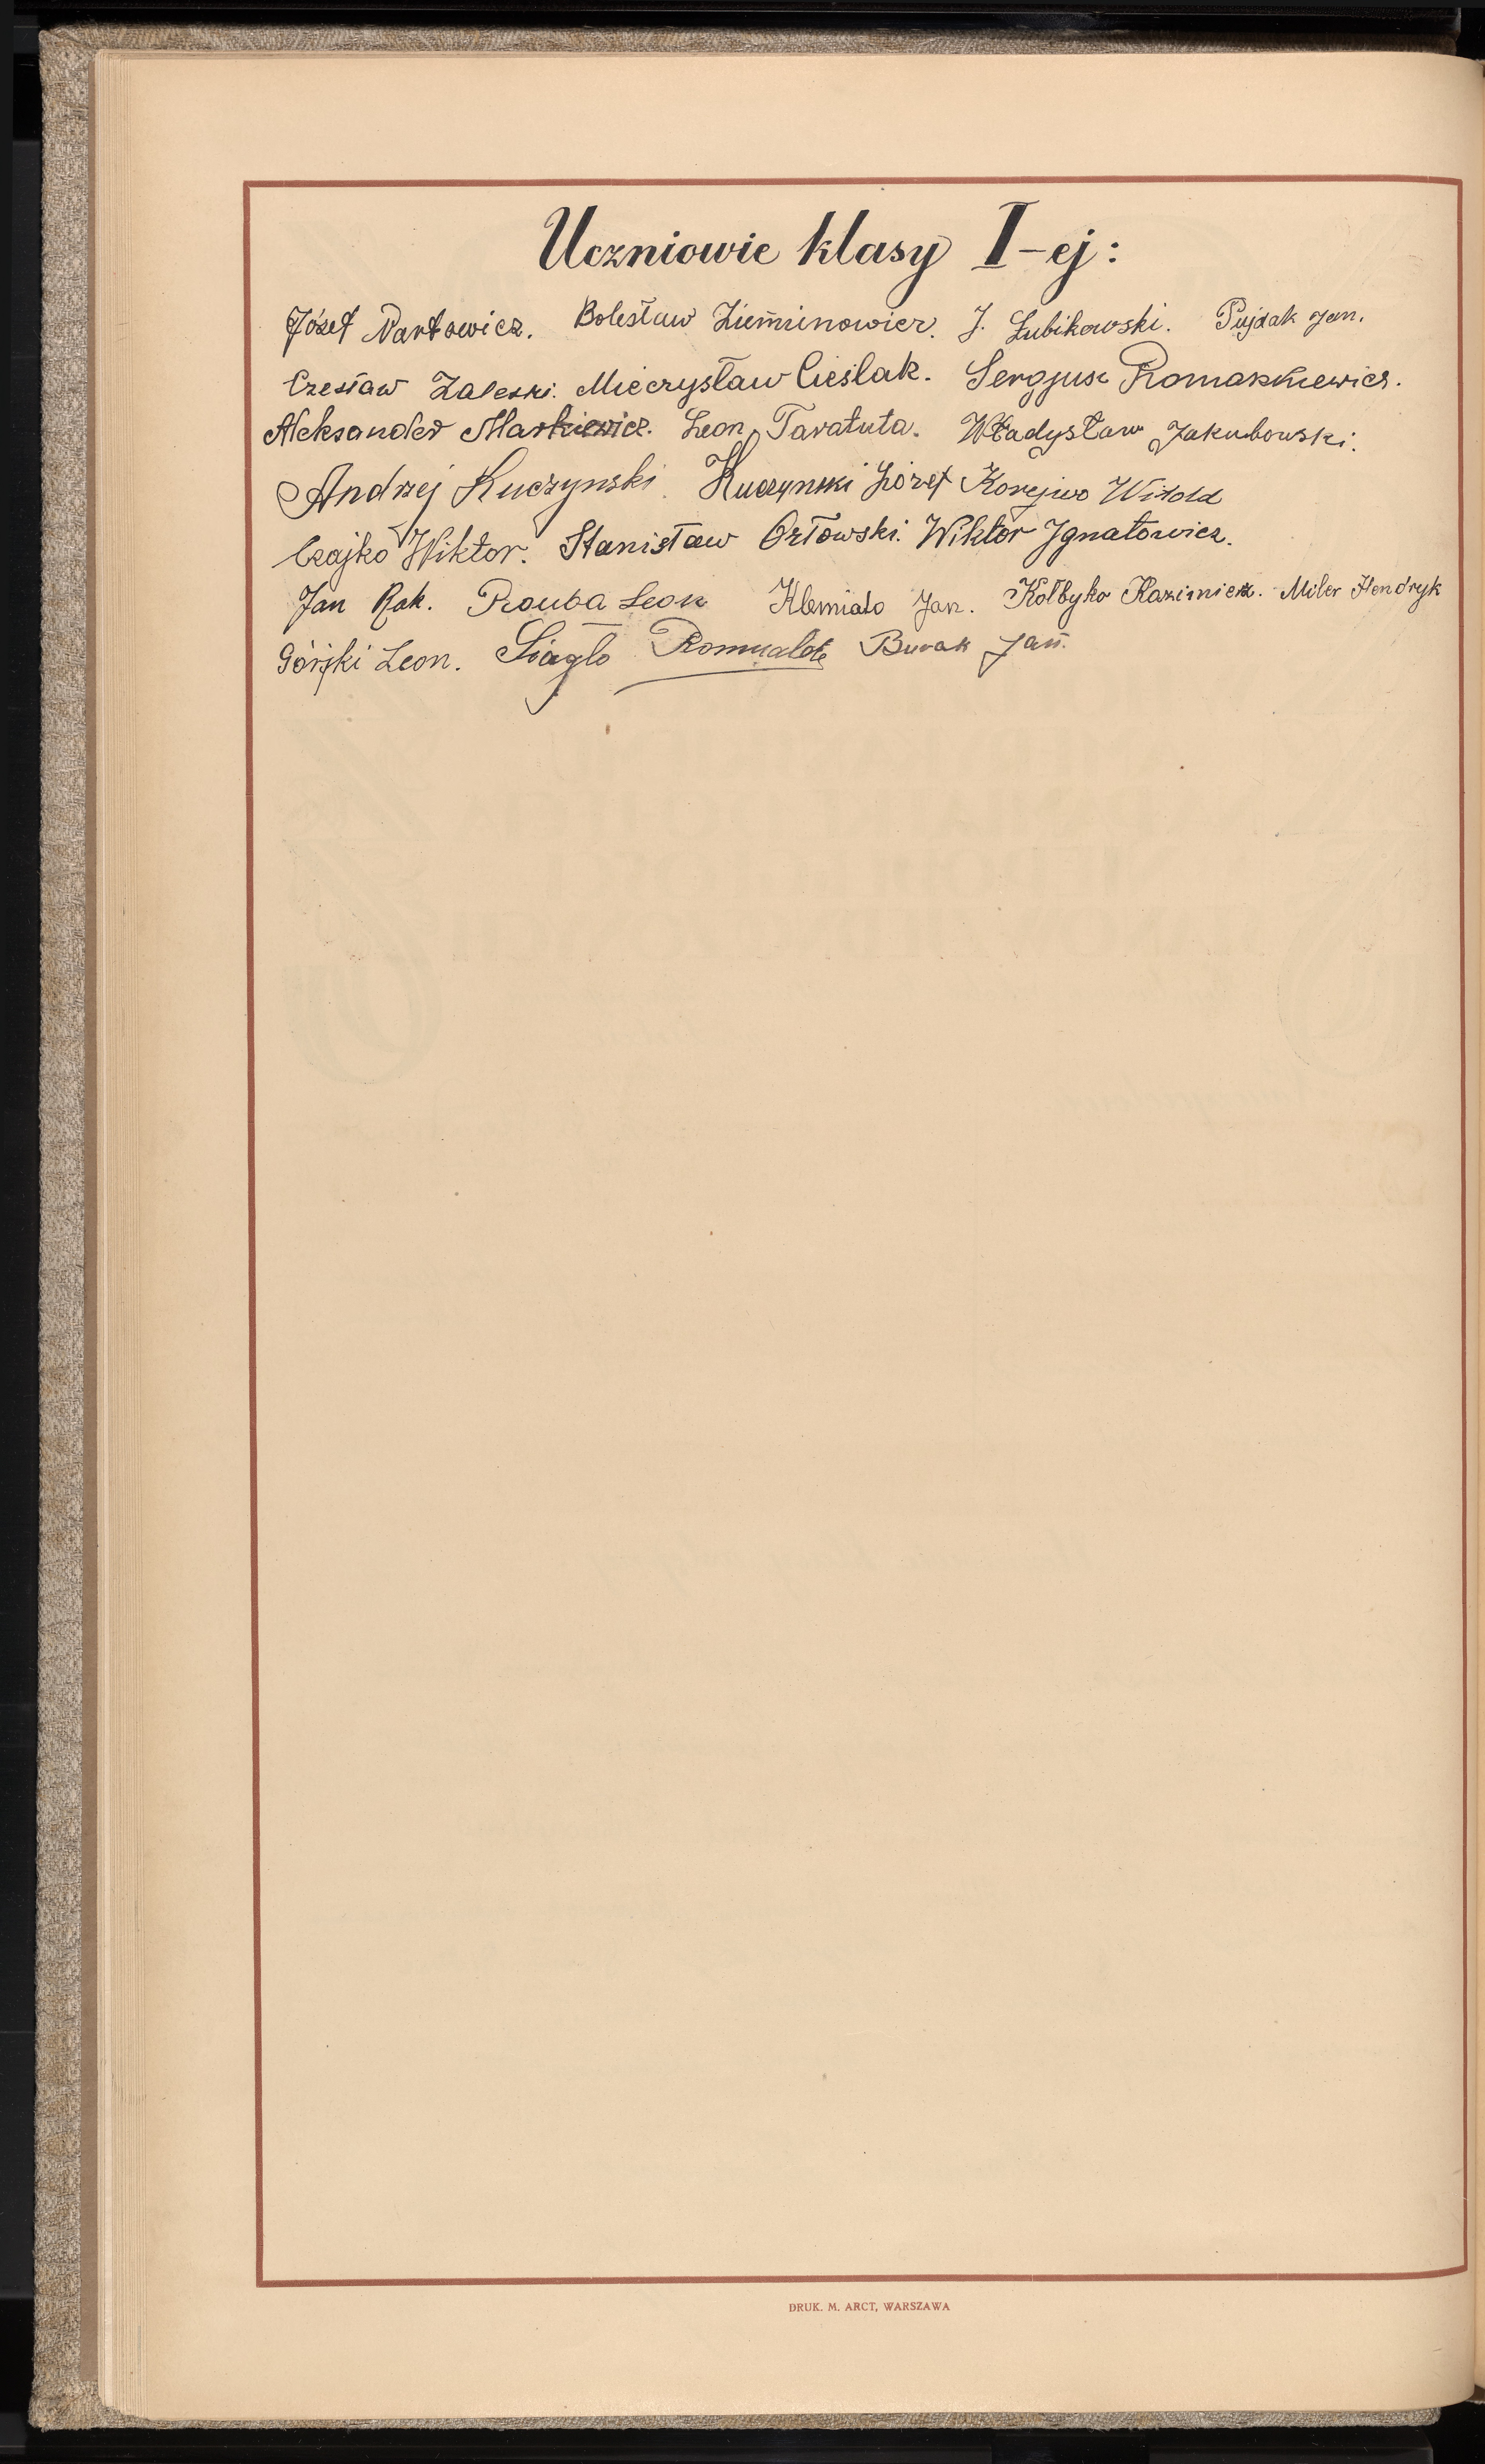 Uczniowie klasy I-ej:
Józef Nartowicz. Bolesław Zieminowicz. J. Łubikowski. Pujdak Jan.
Czesław Zaleski. Mieczysław Cieślak. Sergjusz Romaszkiewicz.
Aleksander Markiewicz. Leon Taratuta. Władysław Jakubowski.
Andrzej Kuczynski. Kuczynski Józef Korejwo Witold
Czajko Wiktor. Stanisław Orłowski. Wiktor Ignatowicz.
Jan Rak. Prouba Leon Klemiato Jan. Kołbyko Kazimierz. Miler Hendryk
Górski Leon. Siagło Romualde Burak Jan.
DRUK. M. ARCT, WARSZAWA